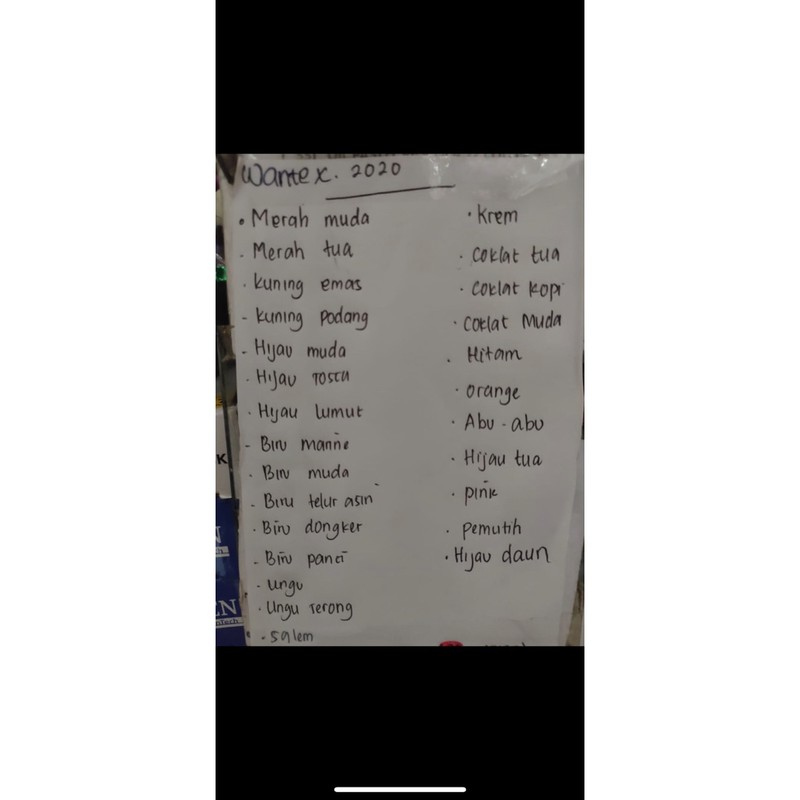 Wantex. 2020
• Merah muda
- Merah tua
- Kuning emas
- Kuning Podang
- Hijau muda
- Hijau Tosca
- Hijau lumut
- Biru marine
- Biru muda
- Biru telur asin
- Biru dongker
- Biru panci
- Ungu
- Ungu Terong
- Salem
• Krem
• Coklat tua
• Coklat Kopi
• Coklat Muda
• Hitam
• Orange
• Abu - abu
• Hijau tua
• Pink
• Pemutih
• Hijau daun
K
N
EN